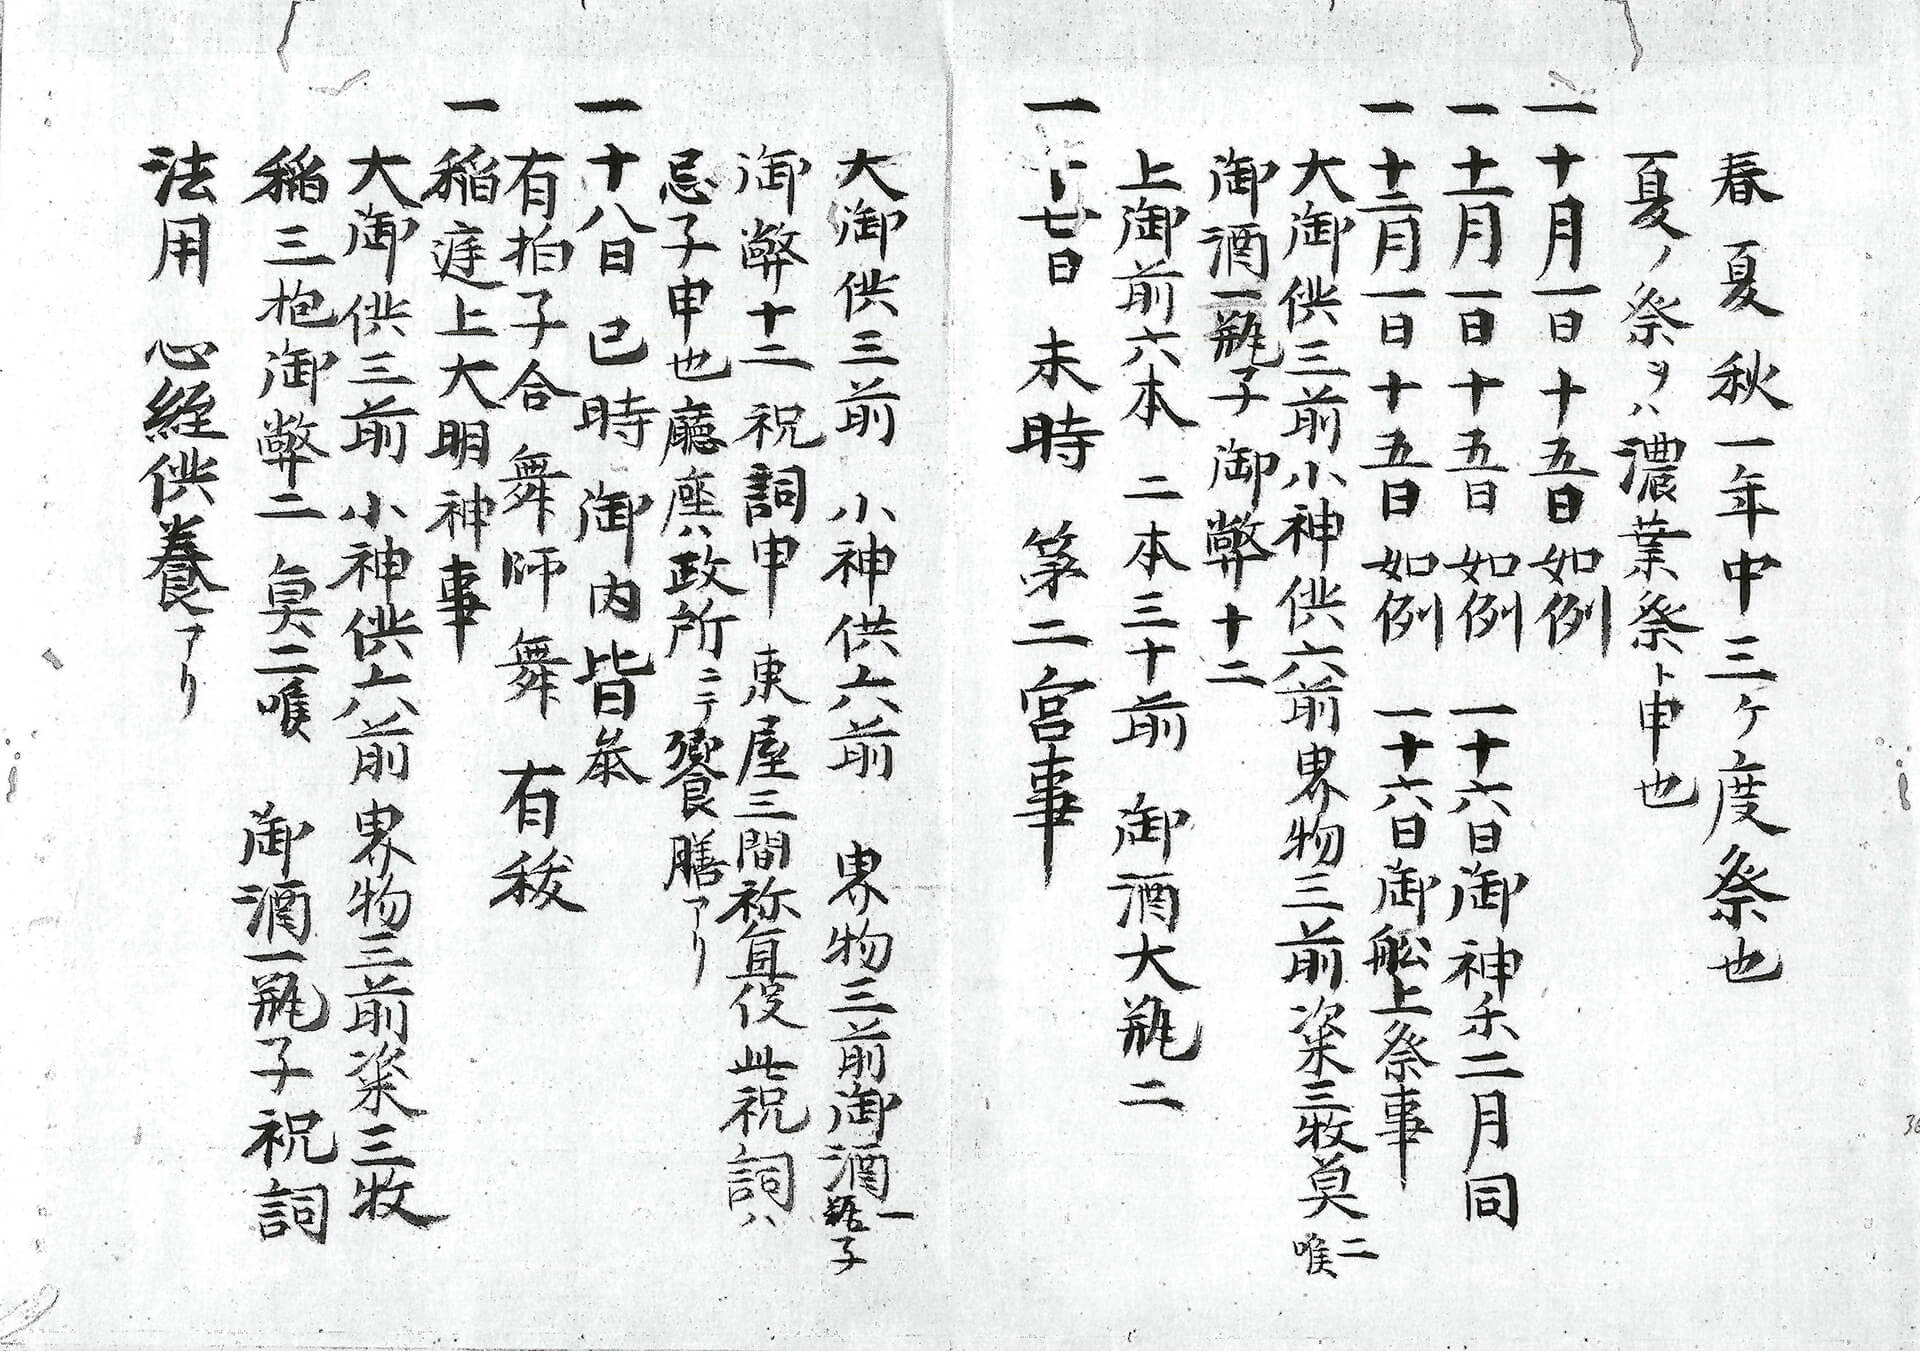 春夏秋一年中三ケ度祭也
夏ノ祭ヲハ濃葉祭ト申也
一十月一日十五日如例
一十一月一日十五日如例 一十六日御神楽二月同
一十二月一日十五日如例 一十六日御舩上祭事
大御供三前小神供六前畀物三前粢三牧莫二喉
御酒一瓶子御弊十二
上御前六本 二本三十前 御酒大瓶二
一 廿日 未時 第二宮事
大御供三前 小神供六前 畀物三前御酒一瓶子
御弊十二 祝詞申 東屋三間祢冝役此祝詞ハ
忌子申也廳座ハ政所ニテ饗膳アリ
一十八日 巳時 御内皆参
有拍子合 舞師舞 有秡
一稲庭上大明神事
大御供三前 小神供六前 畀物三前粢三牧
稲三抱御弊二 莫二喉 御酒一瓶子祝詞
法用 心経供養アリ